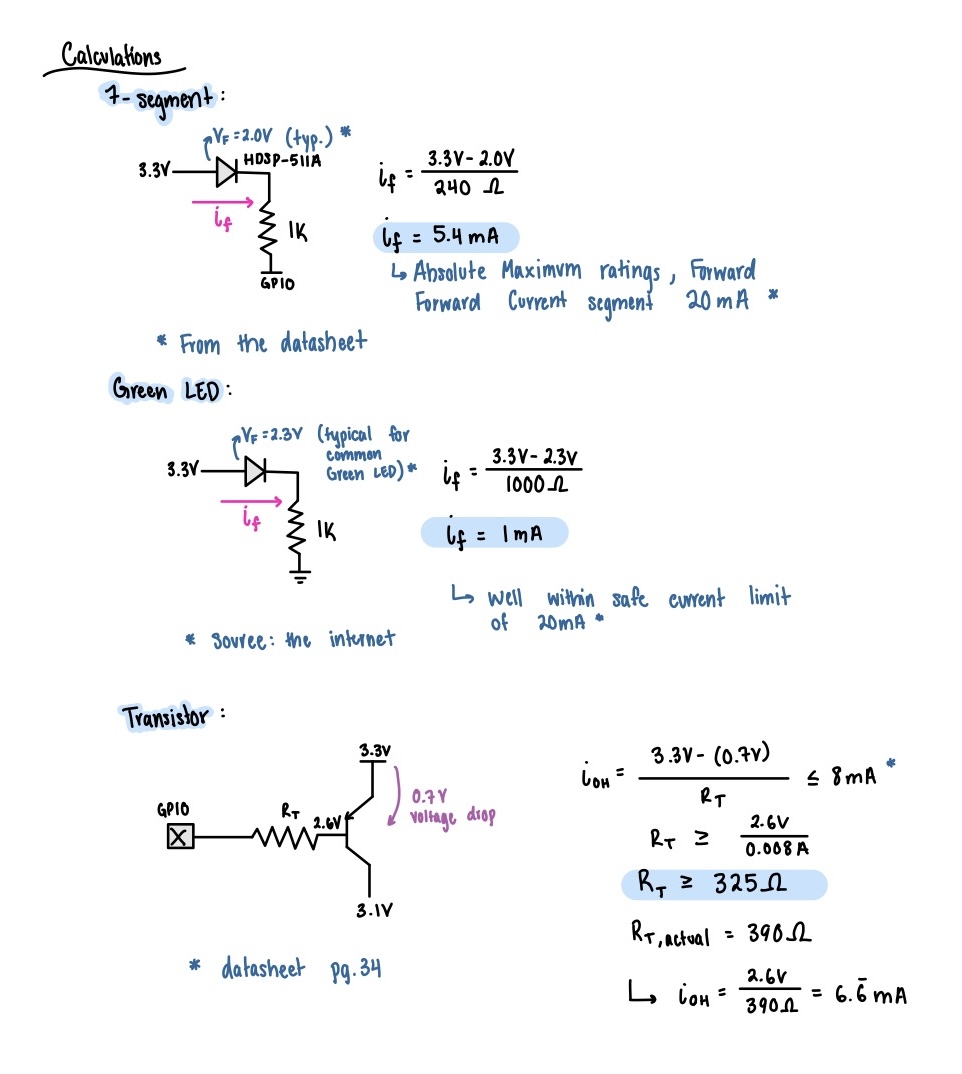 Calculations
7-segment:
VF = 2.0V (typ.) *
HDSP-511A
3.3V
if
1K
GPIO
if = 3.3V - 2.0V / 240 Ω
if = 5.4 mA
↳ Absolute Maximum ratings, Forward
Forward Current segment 20 mA *
* From the datasheet
Green LED:
VF = 2.3V (typical for
common
Green LED) *
3.3V
if
1K
if = 3.3V - 2.3V / 1000 Ω
if = 1 mA
↳ Well within safe current limit
of 20mA *
* Source: the internet
Transistor:
3.3V
0.7V
voltage drop
GPIO
RT
2.6V
3.1V
* datasheet pg.34
iOH = 3.3V - (0.7V) / RT ≤ 8mA *
RT ≥ 2.6V / 0.008A
RT ≥ 325Ω
RT,actual = 390Ω
↳ iOH = 2.6V / 390Ω = 6.6̄ mA